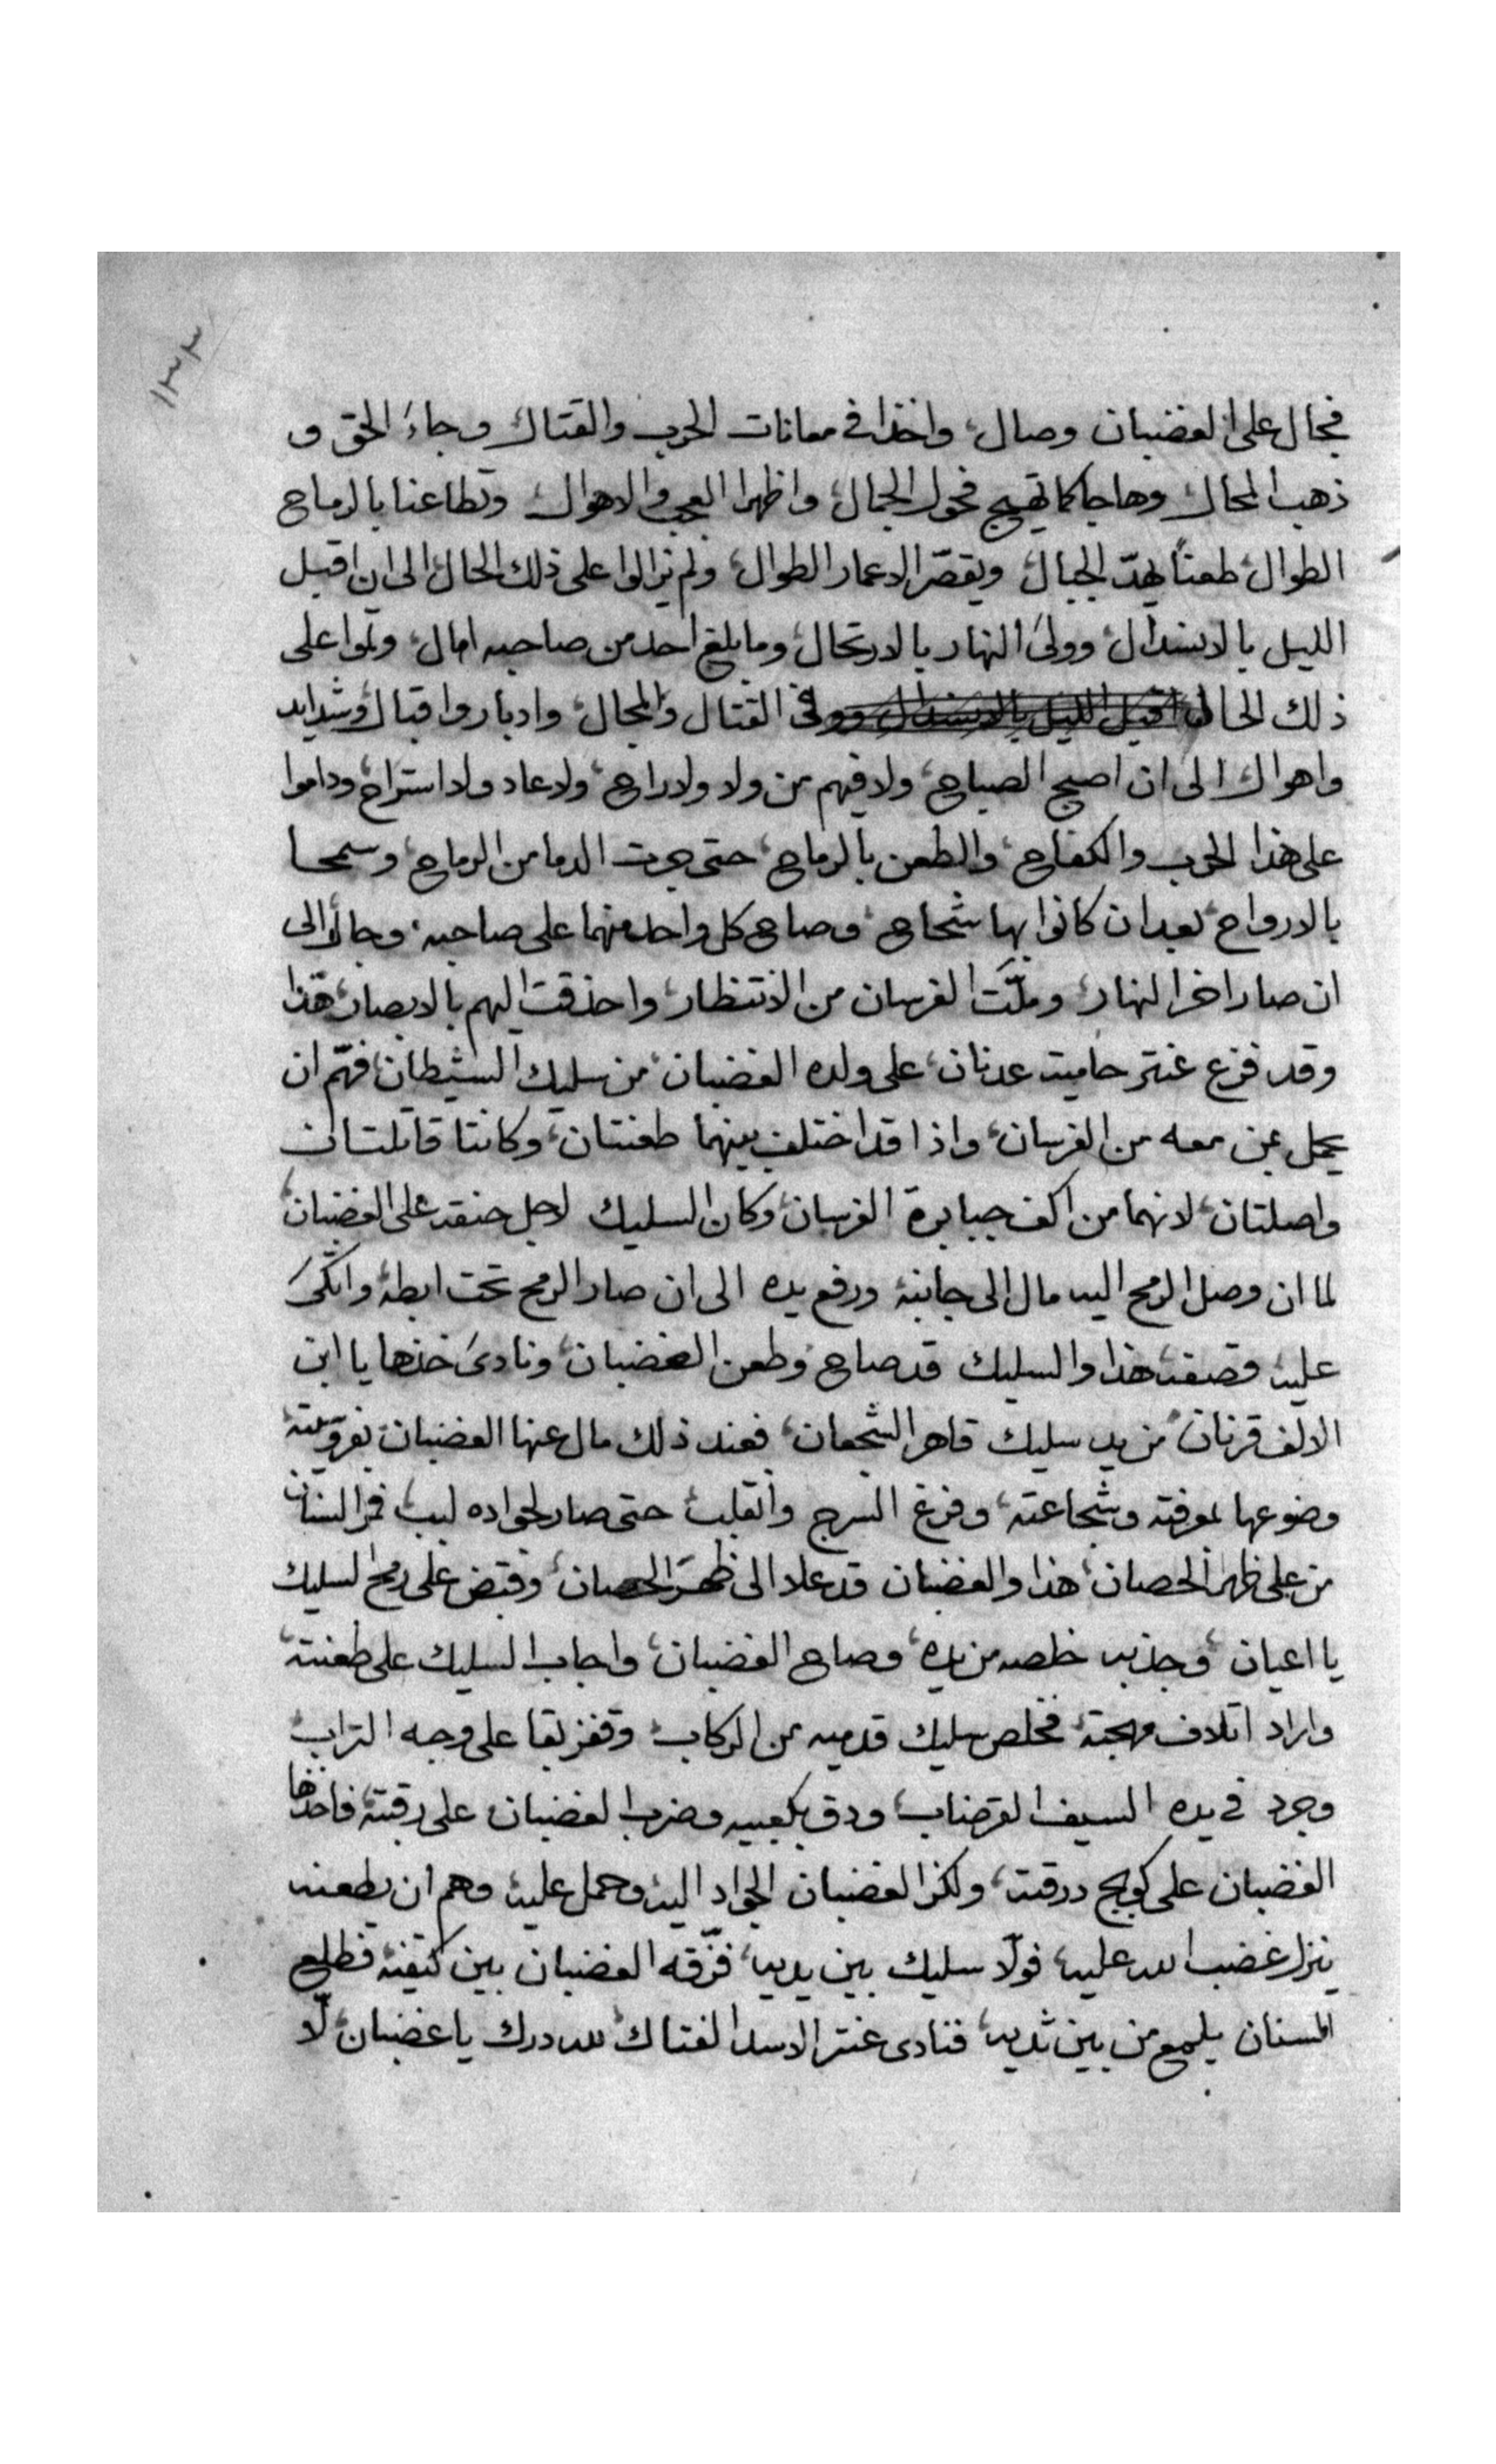 ١٣٣
فجال على الغضبان وصال، واخذا في معانات الحرب والقتال وجاءَ الحق و
ذهب المحال وهاجا كما تهيج فحول الجمال، واظهرا العجب والاهوال وتطاعنا بالرماح
الطوال، طعناً يهدّ الجبال، ويقصّر الاعمار الطوال، ولم يزالوا على ذلك الحال الى ان اقبل
الليل بالانسدال، وولىَ النهار بالارتحال، وما بلغ احد من صاحبه امال، وتموا على
ذلك الحال في القتال والمجال، وادبار واقبال، وشدايد
واهوال الى ان اصبح الصباح، ولا فيهم من ولا ولا راح، ولا عاد ولا استراح، وداموا
على هذا الحرب والكفاح، والطعن بالرماح، حتى جرت الدما من الرماح، وسمحا
بالارواح، بعد ان كانوا بها شحاح، وصاح كل واحد منهما على صاحبه، وجالوا الى
ان صار اخر النهار، وملّت الفرسان من الانتظار، واحذقت اليهم بالابصار، هذا
وقد فزع عنتر حاميت عدنان، على ولده الغضبان، من سليك الشيطان، فهّم ان
يحمل بمن معه من الفرسان، واذا قد اختلف بينهما طعنتان، وكانتا قاتلتان
واصلتان، لانهما من اكف جبابرة الفرسان، وكان السليك لاجل حنقه على الغضبان
لما ان وصل الرمح اليه مال الى جانبه ورفع يده الى ان صار الرمح تحت ابطه، واتكىَ
عليه فقصفه، هذا والسليك قد صاح وطعن الغضبان، ونادىَ خذها يا ابن
الالف قرنان، من يد سليك قاهر الشجعان، فعند ذلك مال عنها الغضبان بفروسيته
وضوعها بمعرفته وشجاعته، وفرغ السرج وانقلب، حتى صار لجواده لبب، فمر السنان
من على ظهر الحصان، هذا والغضبان قد علا الى ظهر الحصان، وقبض على رمح السليك
يا اعيان، وجذبه خلصه من يده، وصاح الغضبان، واجاب السليك على طعنته
واراد اتلاف مهجته، فخلص سليك قدميه من الركاب، وقفز بقا على وجه التراب
وجرد في يده السيف القرضاب، ودق بكعبيه وضرب الغضبان على رقبته، فاخذها
الغضبان على كوبج درقته، ولكز الغضبان الجواد اليه وحمل عليه وهم ان يطعنه
ينزل غضب الله عليه، فولّا سليك بين يديه، فزّقه الغضبان بين كتفيه، فطلع
السنان يلمع من بين ثديه، فنادى عنتر الاسد الفتاك، لله درك يا غضبان، لّا